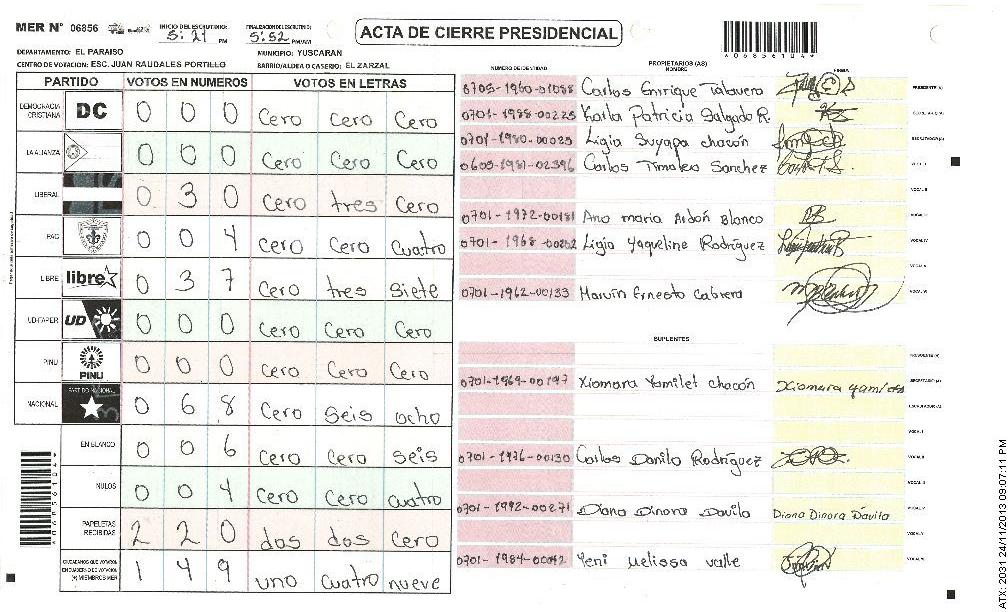 MER N° 06856
INICIO DEL ESCRUTINIO: 5:21 PM
FINALIZACION DEL ESCRUTINIO: 5:52 PM/AM
ACTA DE CIERRE PRESIDENCIAL
*06856104*
DEPARTAMENTO: EL PARAISO
MUNICIPIO: YUSCARAN
CENTRO DE VOTACION: ESC. JUAN RAUDALES PORTILLO
BARRIO/ALDEA O CASERIO: EL ZARZAL
PARTIDO VOTOS EN NUMEROS VOTOS EN LETRAS
DEMOCRACIA CRISTIANA DC 0 0 0 Cero Cero Cero
LA ALIANZA 0 0 0 Cero Cero Cero
LIBERAL 0 3 0 Cero tres Cero
PAC 0 0 4 Cero Cero Cuatro
LIBRE libre 0 3 7 Cero tres Siete
UD-FAPER UD 0 0 0 Cero Cero Cero
PINU PINU 0 0 0 Cero Cero Cero
NACIONAL PARTIDO NACIONAL 0 6 8 Cero Seis ocho
EN BLANCO 0 0 6 Cero Cero Seis
NULOS 0 0 4 Cero Cero Cuatro
PAPELETAS RECIBIDAS 2 2 0 dos dos Cero
1 4 9 uno Cuatro nueve
(+) MIEMBROS MER
NUMERO DE IDENTIDAD PROPIETARIOS (AS) NOMBRE FIRMA
Carlos Enrique Talavera PRESIDENTE (A)
0701-1988-00225 Karla Patricia Salgado R. SECRETARIO (A)
0701-1980-00025 Ligia Suyapa chacón ESCRUTADOR (A)
0605-1981-02396 Carlos Timoteo Sanchez VOCAL I
VOCAL II
0701-1972-00181 Ana maria Ardón Blanco VOCAL III
Ligia Yaqueline Rodríguez VOCAL IV
VOCAL V
0701-1962-00133 Marvin Ernesto Cabrera VOCAL VI
SUPLENTES
PRESIDENTE (A)
0701-1969-00197 Xiomara Yamilet chacón SECRETARIO (A)
ESCRUTADOR (A)
VOCAL I
0701-1976-00130 Carlos Danilo Rodríguez VOCAL II
VOCAL III
0701-1992-00271 Diana Dinora Davila Diana Dinora Davila VOCAL IV
VOCAL V
0701-1984-00042 Yeni Melissa valle VOCAL VI
*06856104*
ATX: 2031 24/11/2013 09:07:11 PM